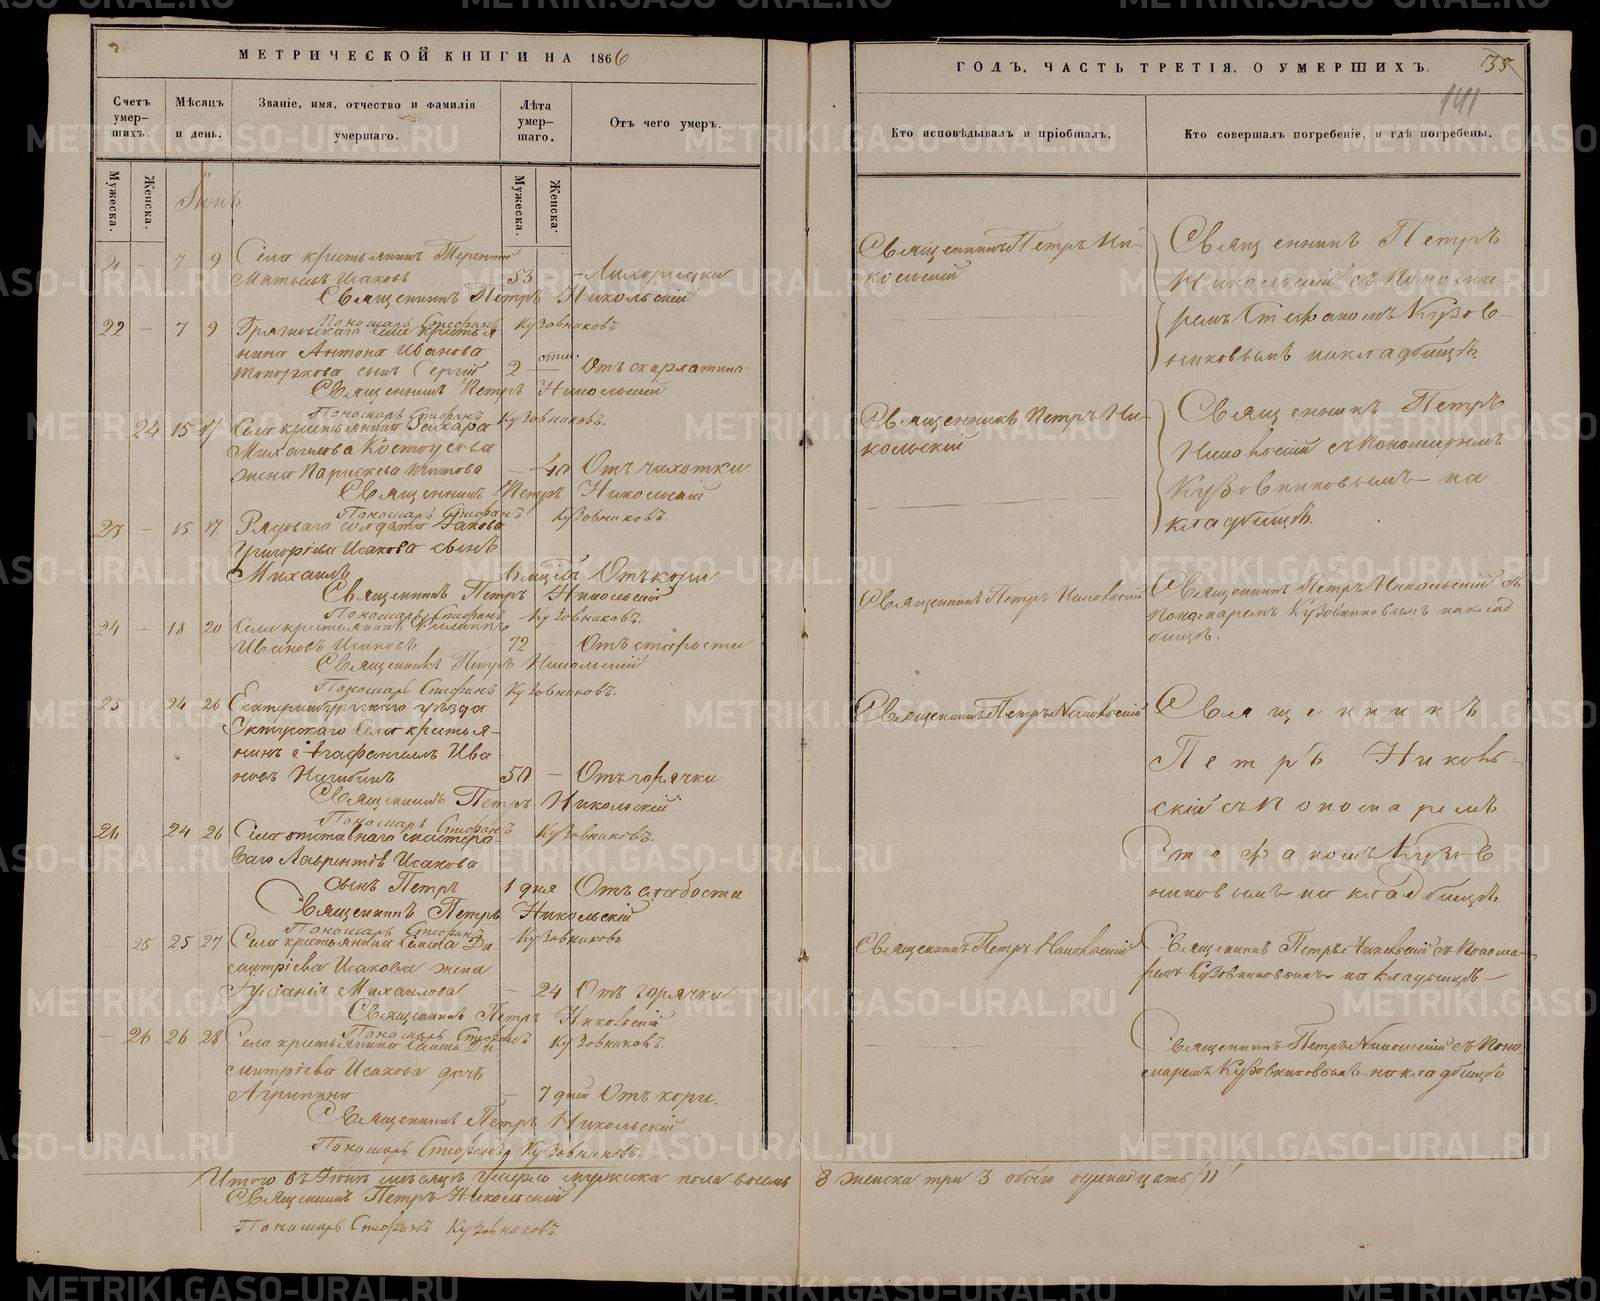 МЕТРИЧЕСКОЙ КНИГИ НА 1866
ГОДЪ, ЧАСТЬ ТРЕТІЯ, О УМЕРШИХЪ.
35
141
Счетъ умер-шихъ.
Мѣсяцъ и день.
Званіе, имя, отчество и фамилія умершаго.
Лѣта умер-шаго.
Отъ чего умеръ.
Кто исповѣдывалъ и пріобщалъ.
Кто совершалъ погребеніе, и гдѣ погребены.
Мужеска.
Женска.
Мужеска.
Женска.
Іюнь
21 - 7 9 Села крестьянинъ Терентій
Матѳеевъ Исаковъ 53 - Лихорадки
Священникъ Петръ Никольскій
Пономарь Стефанъ Кузовниковъ
Священникъ Петръ Ни-
кольскій
Священникъ Петръ
Никольскій съ Понома-
ремъ Стефаномъ Кузов-
никовымъ на кладбищѣ.
22 - 7 9 села крестья
нина Антона Иванова
Топоркова сынъ Сергій 2 - Отъ скарлатины
Священникъ Петръ Никольскій
Пономарь Стефанъ Кузовниковъ.
24 15 17 Села крестьянина Захара
Михаилова Костоусова
жена Параскева Титова - 40 Отъ чахотки
Священникъ Петръ Никольскій
Пономарь Стефанъ Кузовниковъ.
Священникъ Петръ Ни-
кольскій
Священникъ Петръ
Никольскій съ Пономаремъ
Кузовниковымъ на
кладбищѣ.
23 - 15 17 Рядоваго солдата Іакова
Григоріева Исакова сынъ
Михаилъ Отъ кори
Священникъ Петръ Никольскій
Пономарь Стефанъ Кузовниковъ.
24 - 18 20 Села крестьянинъ Филиппъ
Ивановъ Исаковъ 72 - Отъ старости
Священникъ Петръ Никольскій
Пономарь Стефанъ Кузовниковъ.
Священникъ Петръ Никольскій
Священникъ Петръ Никольскій съ
Пономаремъ Кузовниковымъ на клад
бищѣ.
25 24 26 Екатеринбургскаго уѣзда
села крестья-
нинъ Агафангелъ Ива
новъ Нагибинъ 50 - Отъ горячки
Священникъ Петръ Никольскій
Пономарь Стефанъ Кузовниковъ.
Священникъ Петръ Никольскій
Священникъ
Петръ Николь-
скій съ Пономаремъ
Стефаномъ Кузов
никовымъ на кладбищѣ.
26 24 26 Села отставнаго мастеро-
ваго Лаврентія Исакова
сынъ Петръ 1 дня Отъ слабости
Священникъ Петръ Никольскій
Пономарь Стефанъ Кузовниковъ
- 25 25 27 Села крестьянина Ди
митріева Исакова жена
Іуліанія Михаилова - 24 Отъ горячки
Священникъ Петръ Никольскій
Пономарь Стефанъ Кузовниковъ.
Священникъ Петръ Никольскій
Священникъ Петръ Никольскій съ Понома-
ремъ Кузовниковымъ на кладбищѣ
- 26 26 28 Села крестьянина Ди-
митріева Исакова дочь
Агрипина - 7 дней Отъ кори.
Священникъ Петръ Никольскій
Пономарь Стефанъ Кузовниковъ.
Священникъ Петръ Никольскій съ Поно
маремъ Кузовниковымъ на кладбищѣ
Итого въ Іюнѣ мѣсяцѣ умерло мужеска пола восемь 8 женска три 3 обоего одинадцать /11/
Священникъ Петръ Никольскій
Пономарь Стефанъ Кузовниковъ
METRIKI.GASO-URAL.RU